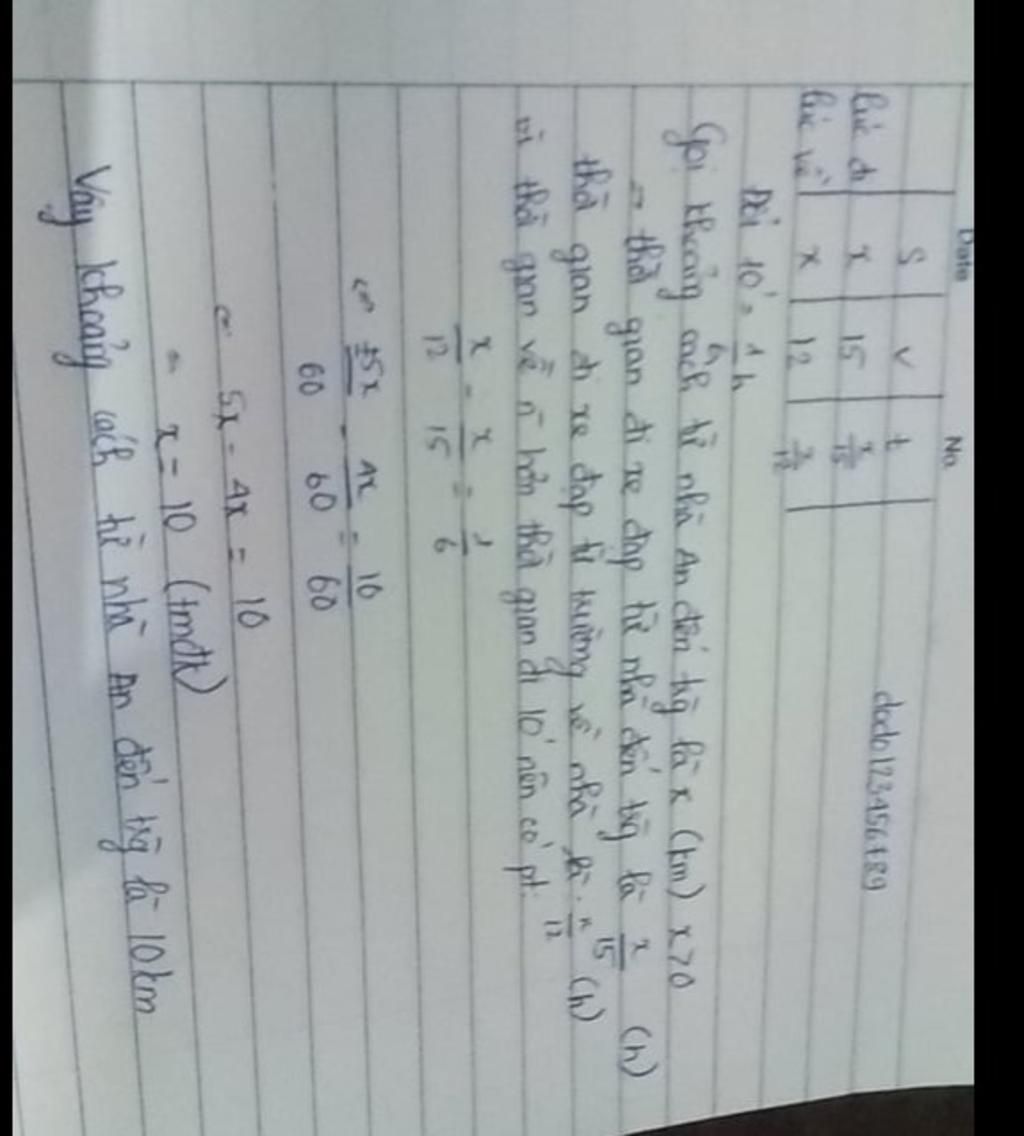 Date No.
S v t
lúc đi x 15 x/15
lúc về x 12 x/12
dodo123456789
Đổi 10' = 1/6 h
Gọi khoảng cách từ nhà An đến trg là x (km) x>0
→ thời gian đi xe đạp từ nhà đến trg là x/15 (h)
thời gian đi xe đạp từ trường về nhà là: x/12 (h)
vì thời gian về n` hơn thời gian đi 10' nên có pt:
x/12 - x/15 = 1/6
⇔ 5x/60 - 4x/60 = 10/60
⇔ 5x - 4x = 10
⇔ x = 10 (tmđk)
Vậy khoảng cách từ nhà An đến trg là 10km